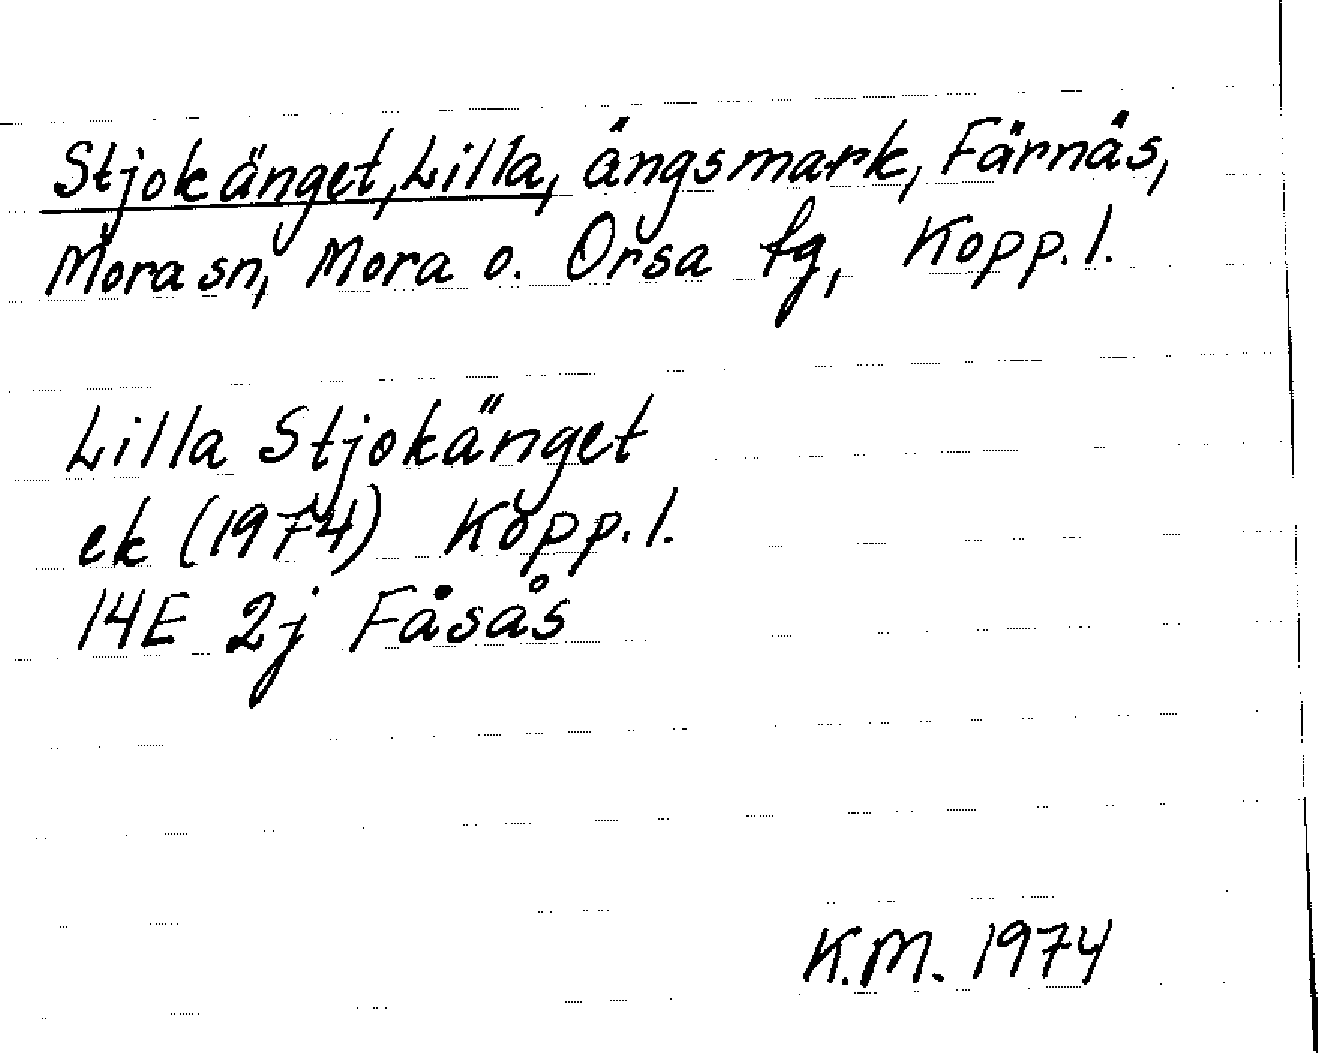 Stjokänget, Lilla, ängsmark, Färnäs,
Mora sn, Mora o. Orsa tg, Kopp. l.
Lilla Stjokänget
ek (1974) Kopp. l.
14E 2j Fåsås
K.M. 1974